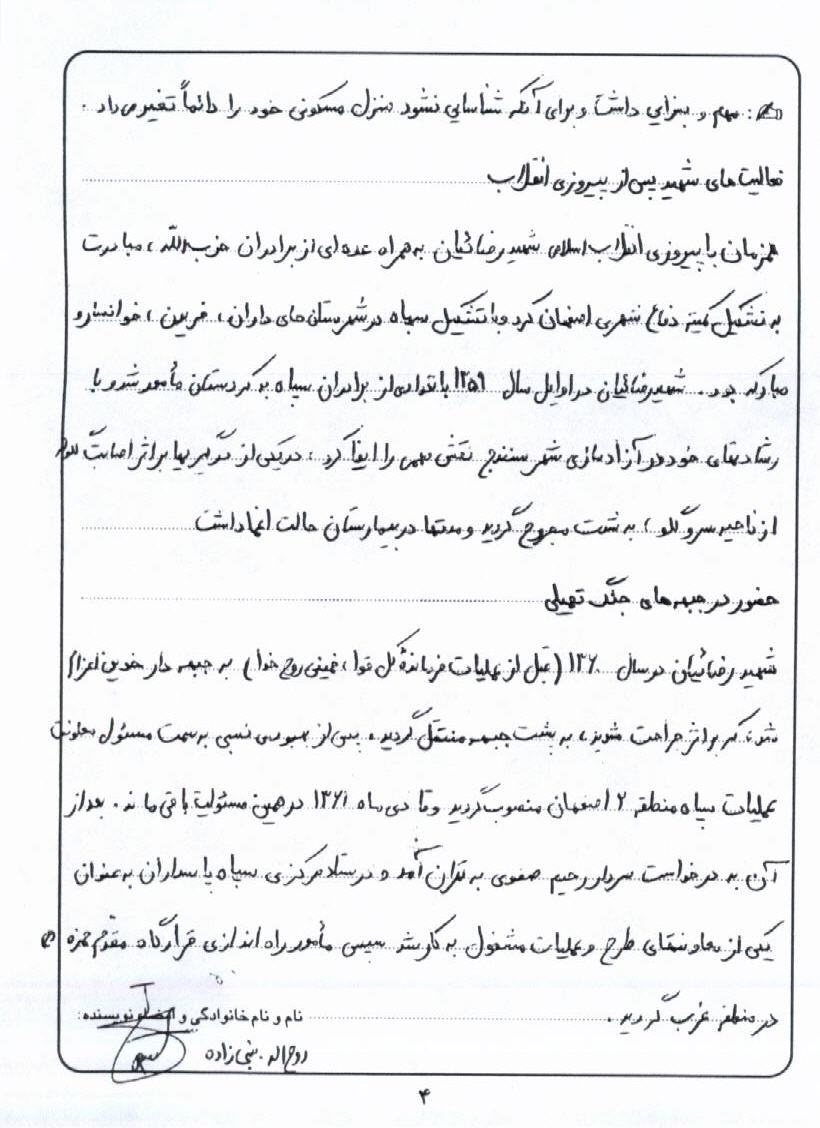 : مهم و بسزایی داشت و برای آنکه شناسایی نشود منزل مسکونی خود را دائماً تغییر می‌داد .
فعالیت‌های شهید پس از پیروزی انقلاب
همزمان با پیروزی انقلاب اسلامی شهید رضائیان به همراه عده‌ای از برادران حزب‌الله ، مبادرت
به تشکیل کمیته دفاع شهری اصفهان کرد و با تشکیل سپاه در شهرستان‌های داران ، فریدن ، خوانسار و
مبارکه بود . شهید رضائیان در اوایل سال ۱۳۵۹ با تعدادی از برادران سپاه به کردستان مأمور شد و با
رشادتهای خود در آزادسازی شهر سنندج نقش مهمی را ایفا کرد ، در یکی از درگیریها بر اثر اصابت گلوله
از ناحیه سر و گلو ، به شدت مجروح گردید و مدتها در بیمارستان حالت اغما داشت
حضور در جبهه‌های جنگ تحمیلی
شهید رضائیان در سال ۱۳۶۰ (قبل از عملیات فرمانده کل قوا ، خمینی روح خدا) به جبهه دارخوین اعزام
شد ، که بر اثر جراحت شدید ، به پشت جبهه منتقل گردید . پس از بهبودی نسبی به سمت مسئول معاونت
عملیات سپاه منطقه ۲ اصفهان منصوب گردید و تا دی ماه ۱۳۶۱ در همین مسئولیت باقی ماند . بعد از
آن به درخواست سردار رحیم صفوی به تهران آمد و در ستاد مرکزی سپاه پاسداران به عنوان
یکی از معاونتهای طرح و عملیات مشغول به کار شد سپس مأمور راه اندازی قرارگاه مقدم حمزه
در منطقه غرب گردید .
نام و نام خانوادگی و امضاء نویسنده:
روح اله
۴